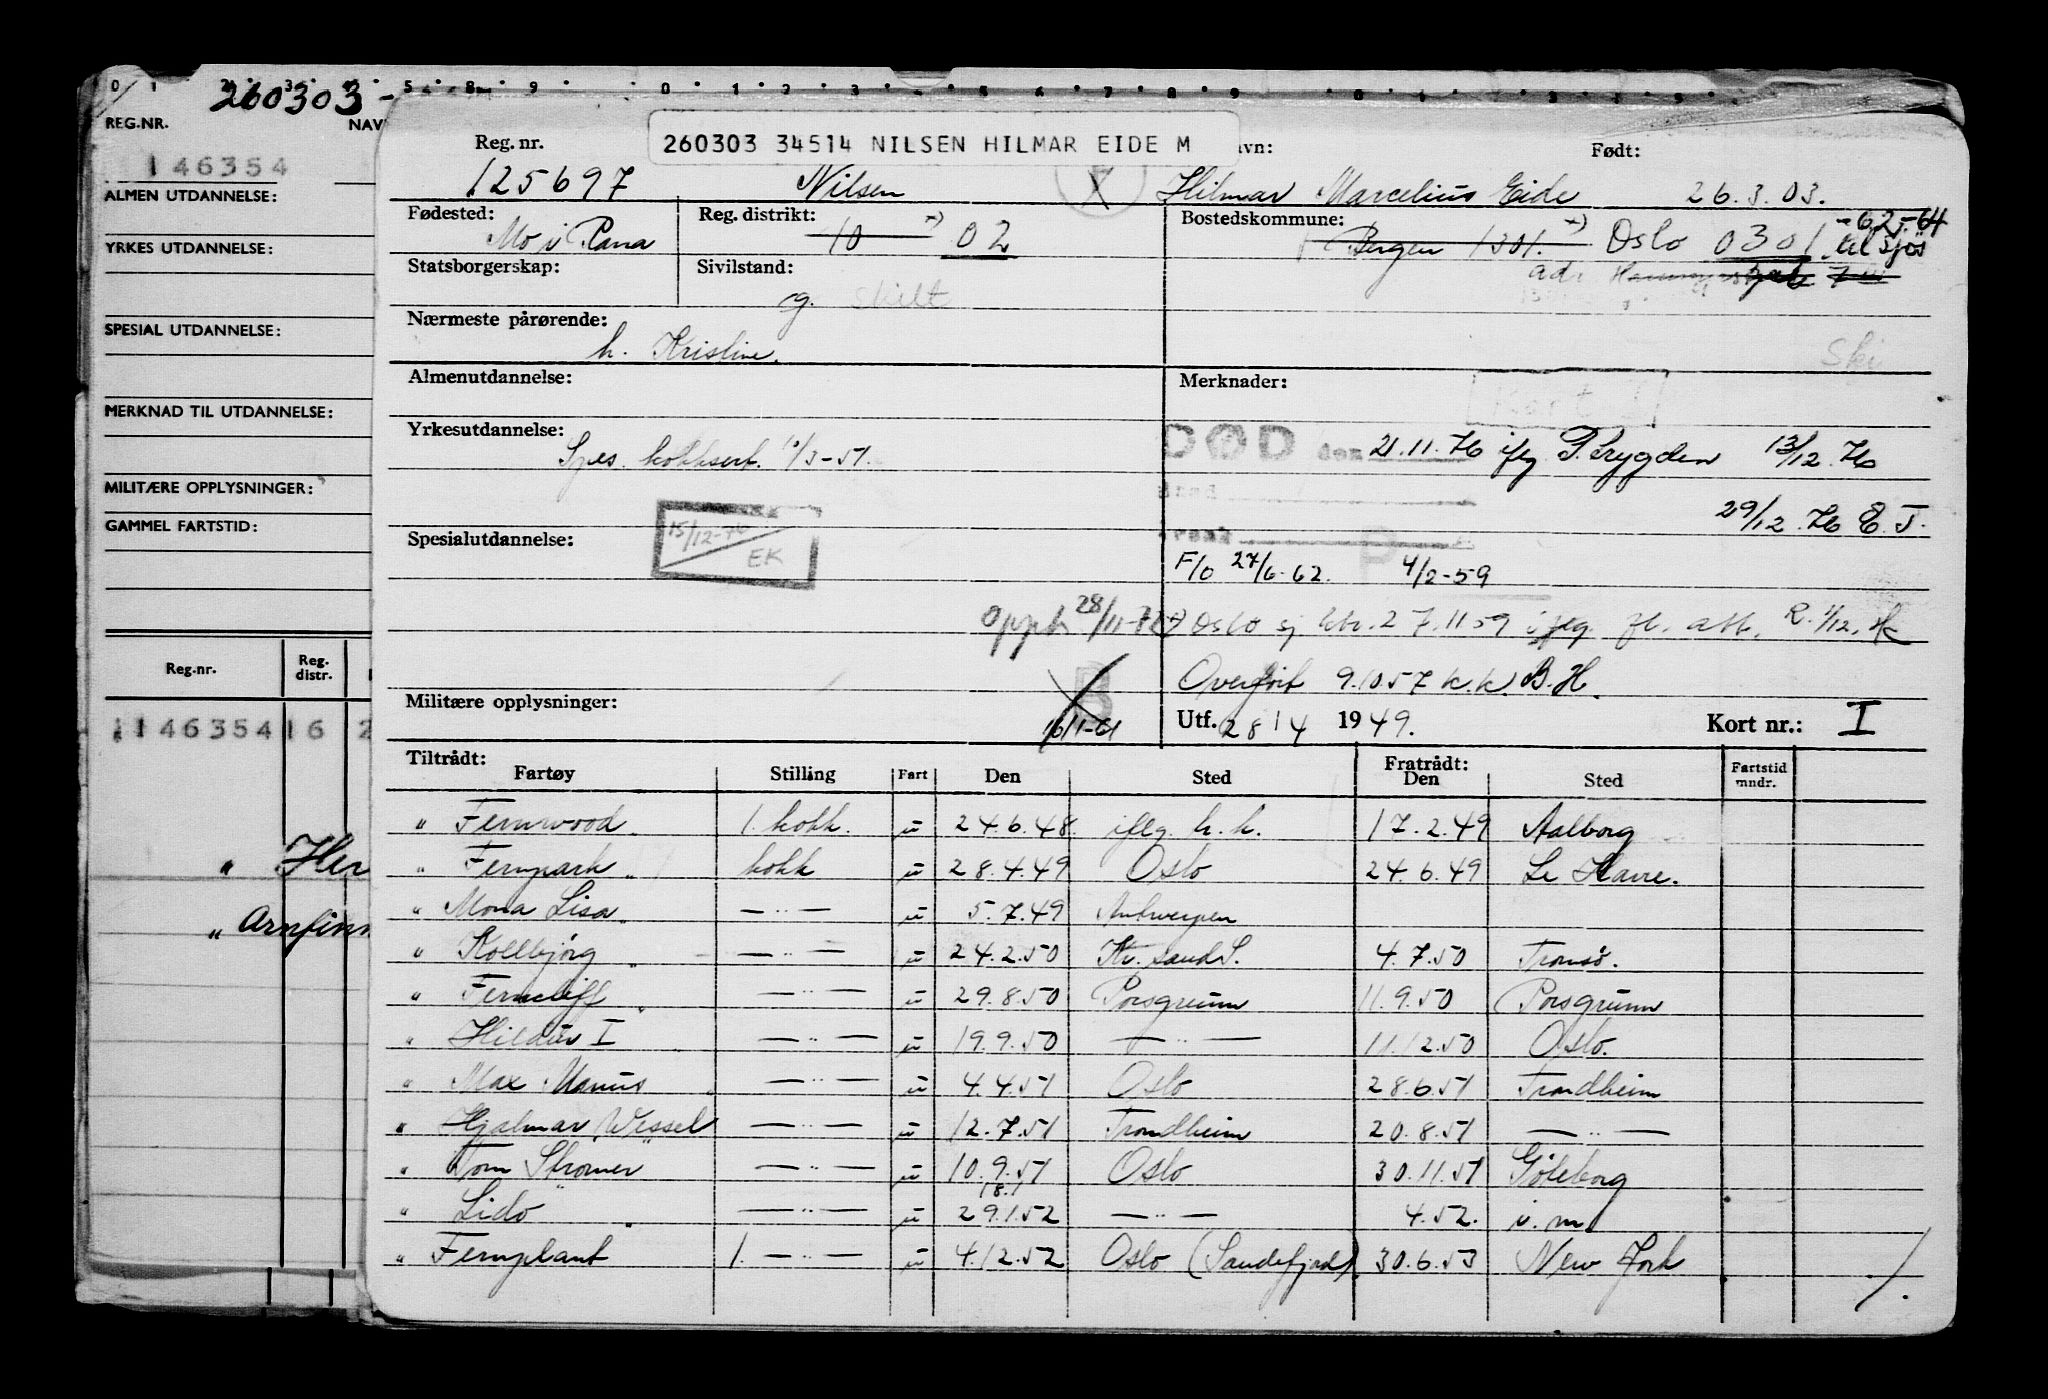 260303
REG.NR.
146354
ALMEN UTDANNELSE:
YRKES UTDANNELSE:
SPESIAL UTDANNELSE:
MERKNAD TIL UTDANNELSE:
MILITÆRE OPPLYSNINGER:
GAMMEL FARTSTID:
Reg.nr. Reg. distr.
146354 16 2
" Her
" Arnfinn
260303 34514 NILSEN HILMAR EIDE M
Reg. nr. Født:
125697 Nilsen Hilmar Marcelius Eide 26.3.03.
Fødested: Reg. distrikt: Bostedskommune: -62-64
Mo i Rana 10 02 Bergen 1301. Oslo 0301
Statsborgerskap: Sivilstand:
g. skilt
Nærmeste pårørende:
h. Kristine.
Ski
Almenutdannelse: Merknader:
Kort I
Yrkesutdannelse:
Spes. kokksert. 1/3-51.
DØD den 21.11.76 iflg P.trygden 13/12.76
29/12.76 E.T.
15/12-76 EK
Spesialutdannelse:
F/o 27/6-62. 4/2-59
oppt 28/11-72
Oslo sj ktr. 27.11 59 ifлg. fl. att. R. 1/12.
Overført 9.10 57 k.k. B.H.
Militære opplysninger:
B
16/1-61
Utf. 28/4 1949. Kort nr.: I
Tiltrådt: Fratrådt:
Fartøy Stilling Fart Den Sted Den Sted Fartstid mndr.
" Fernwood 1. kokk. u 24.6.48 iflg. h.h. 17.2.49 Aalborg
" Fernpark " kokk u 28.4.49 Oslo 24.6.49 Le Havre.
" Mona Lisa " — " — u 5.7.49 Antwerpen
" Kollbjørg " — " — u 24.2.50 Kr. sand S. 4.7.50 Tromsø.
" Ferncliff " — " — u 29.8.50 Porsgrunn 11.9.50 Porsgrunn
" Hildur I — " — u 19.9.50 — " — 11.12.50 Oslo.
" Max Manus " — " — u 4.4.51 Oslo 28.6.51 Trondheim
" Hjalmar Wessel — " — u 12.7.51 Trondheim 20.8.51 — " —
" Tom Strømer — " — u 10.9.51 Oslo 30.11.51 Göteborg
18.1
" Lido " — " — u 29.1.52 — " — 4.52. u.m
" Fernplant 1. — " — u 4.12.52 Oslo (Sandefjord) 30.6.53 New York